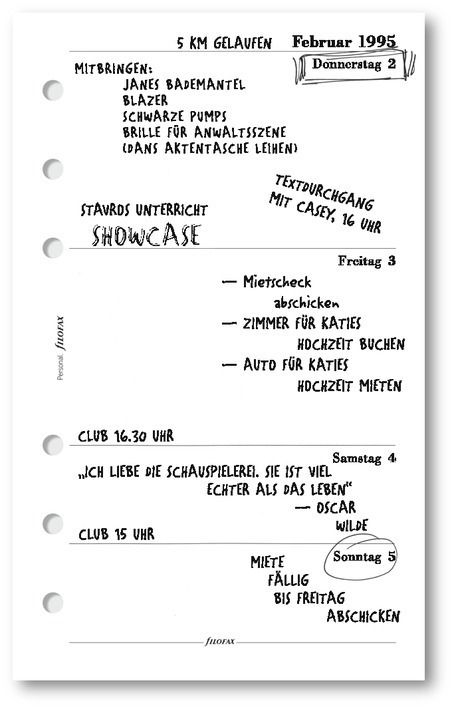 5 KM GELAUFEN Februar 1995
Donnerstag 2
MITBRINGEN:
JANES BADEMANTEL
BLAZER
SCHWARZE PUMPS
BRILLE FÜR ANWALTSSZENE
(DANS AKTENTASCHE LEIHEN)
TEXTDURCHGANG
MIT CASEY, 16 UHR
STAVROS UNTERRICHT
SHOWCASE
Freitag 3
— Mietscheck
abschicken
— ZIMMER FÜR KATIES
HOCHZEIT BUCHEN
— AUTO FÜR KATIES
HOCHZEIT MIETEN
Personal fILOFAX
CLUB 16.30 UHR
Samstag 4
„ICH LIEBE DIE SCHAUSPIELEREI. SIE IST VIEL
ECHTER ALS DAS LEBEN“
— OSCAR
WILDE
CLUB 15 UHR
Sonntag 5
MIETE
FÄLLIG
BIS FREITAG
ABSCHICKEN
fILOFAX